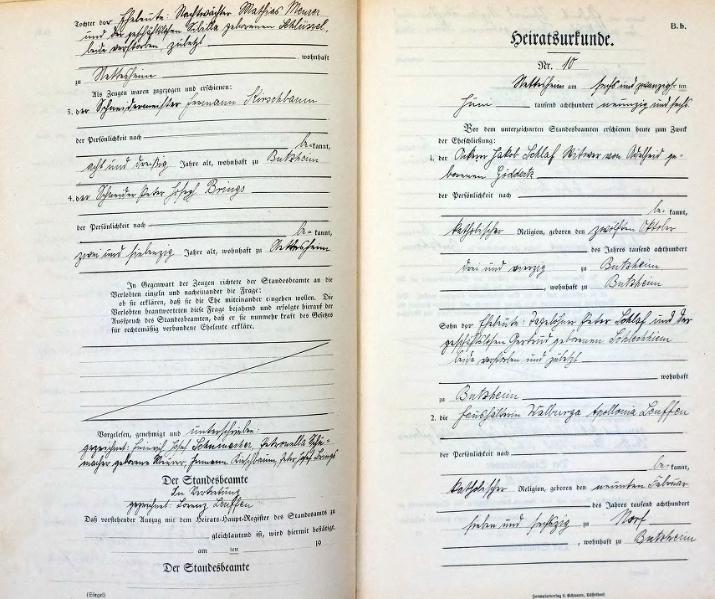 Tochter der Eheleute: Nachtwächter Mathias Meurer
und der geschäftslosen Sibilla geborenen Schlüssel,
beide verstorben, zuletzt
wohnhaft
zu Nettesheim
Als Zeugen waren zugezogen und erschienen:
3. der Schneidermeister Hermann Kirschbaum
der Persönlichkeit nach
be- kannt,
acht und dreißig Jahre alt, wohnhaft zu Butzheim
4. der Schneider Peter Joseph Brings
der Persönlichkeit nach
be- kannt,
zwei und siebenzig Jahre alt, wohnhaft zu Nettesheim
In Gegenwart der Zeugen richtete der Standesbeamte an die
Verlobten einzeln und nacheinander die Frage:
ob sie erklären, daß sie die Ehe miteinander eingehen wollen. Die
Verlobten beantworteten diese Frage bejahend und erfolgte hierauf der
Ausspruch des Standesbeamten, daß er sie nunmehr kraft des Gesetzes
für rechtmäßig verbundene Eheleute erkläre.
Vorgelesen, genehmigt und unterschrieben:
gezeichnet: Heinrich Josef Schumacher, Petronella Schu-
macher geborene Meurer, Hermann Kirschbaum, Peter Josef Brings
Der Standesbeamte
In Vertretung
gezeichnet: Lorenz Louffen
Daß vorstehender Auszug mit dem Heirats-Haupt-Register des Standesamts zu
gleichlautend ist, wird hiermit bestätigt.
am ten 19
Der Standesbeamte
(Siegel)
B. b.
Heiratsurkunde.
Nr. 10
Nettesheim am sechs und zwanzigs- ten
Juni tausend achthundert neunzig und sechs
Vor dem unterzeichneten Standesbeamten erschienen heute zum Zweck
der Eheschließung:
1. der Jakob Schlaf Witwer von Adelheid ge-
borenen Giddeck
der Persönlichkeit nach
be- kannt,
katholischer Religion, geboren den zwölften Oktober
des Jahres tausend achthundert
drei und vierzig zu Butzheim
, wohnhaft zu Butzheim
Sohn der Eheleute: Tagelöhner Peter Schlaf und der
geschäftslosen Gertrud geborenen
beide verstorben und zuletzt
wohnhaft
zu Butzheim
2. die Haushälterin Walburga Apollonia Louffen
der Persönlichkeit nach
be- kannt,
katholischer Religion, geboren den neunten Februar
des Jahres tausend achthundert
sieben und sechzig zu Norf
, wohnhaft zu Butzheim